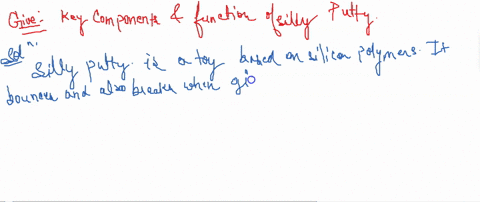 Give:- Key Components & function of silly Putty.
Solⁿ:
Silly putty is a toy based on silicon polymers. It
bounces and also breaks when gi